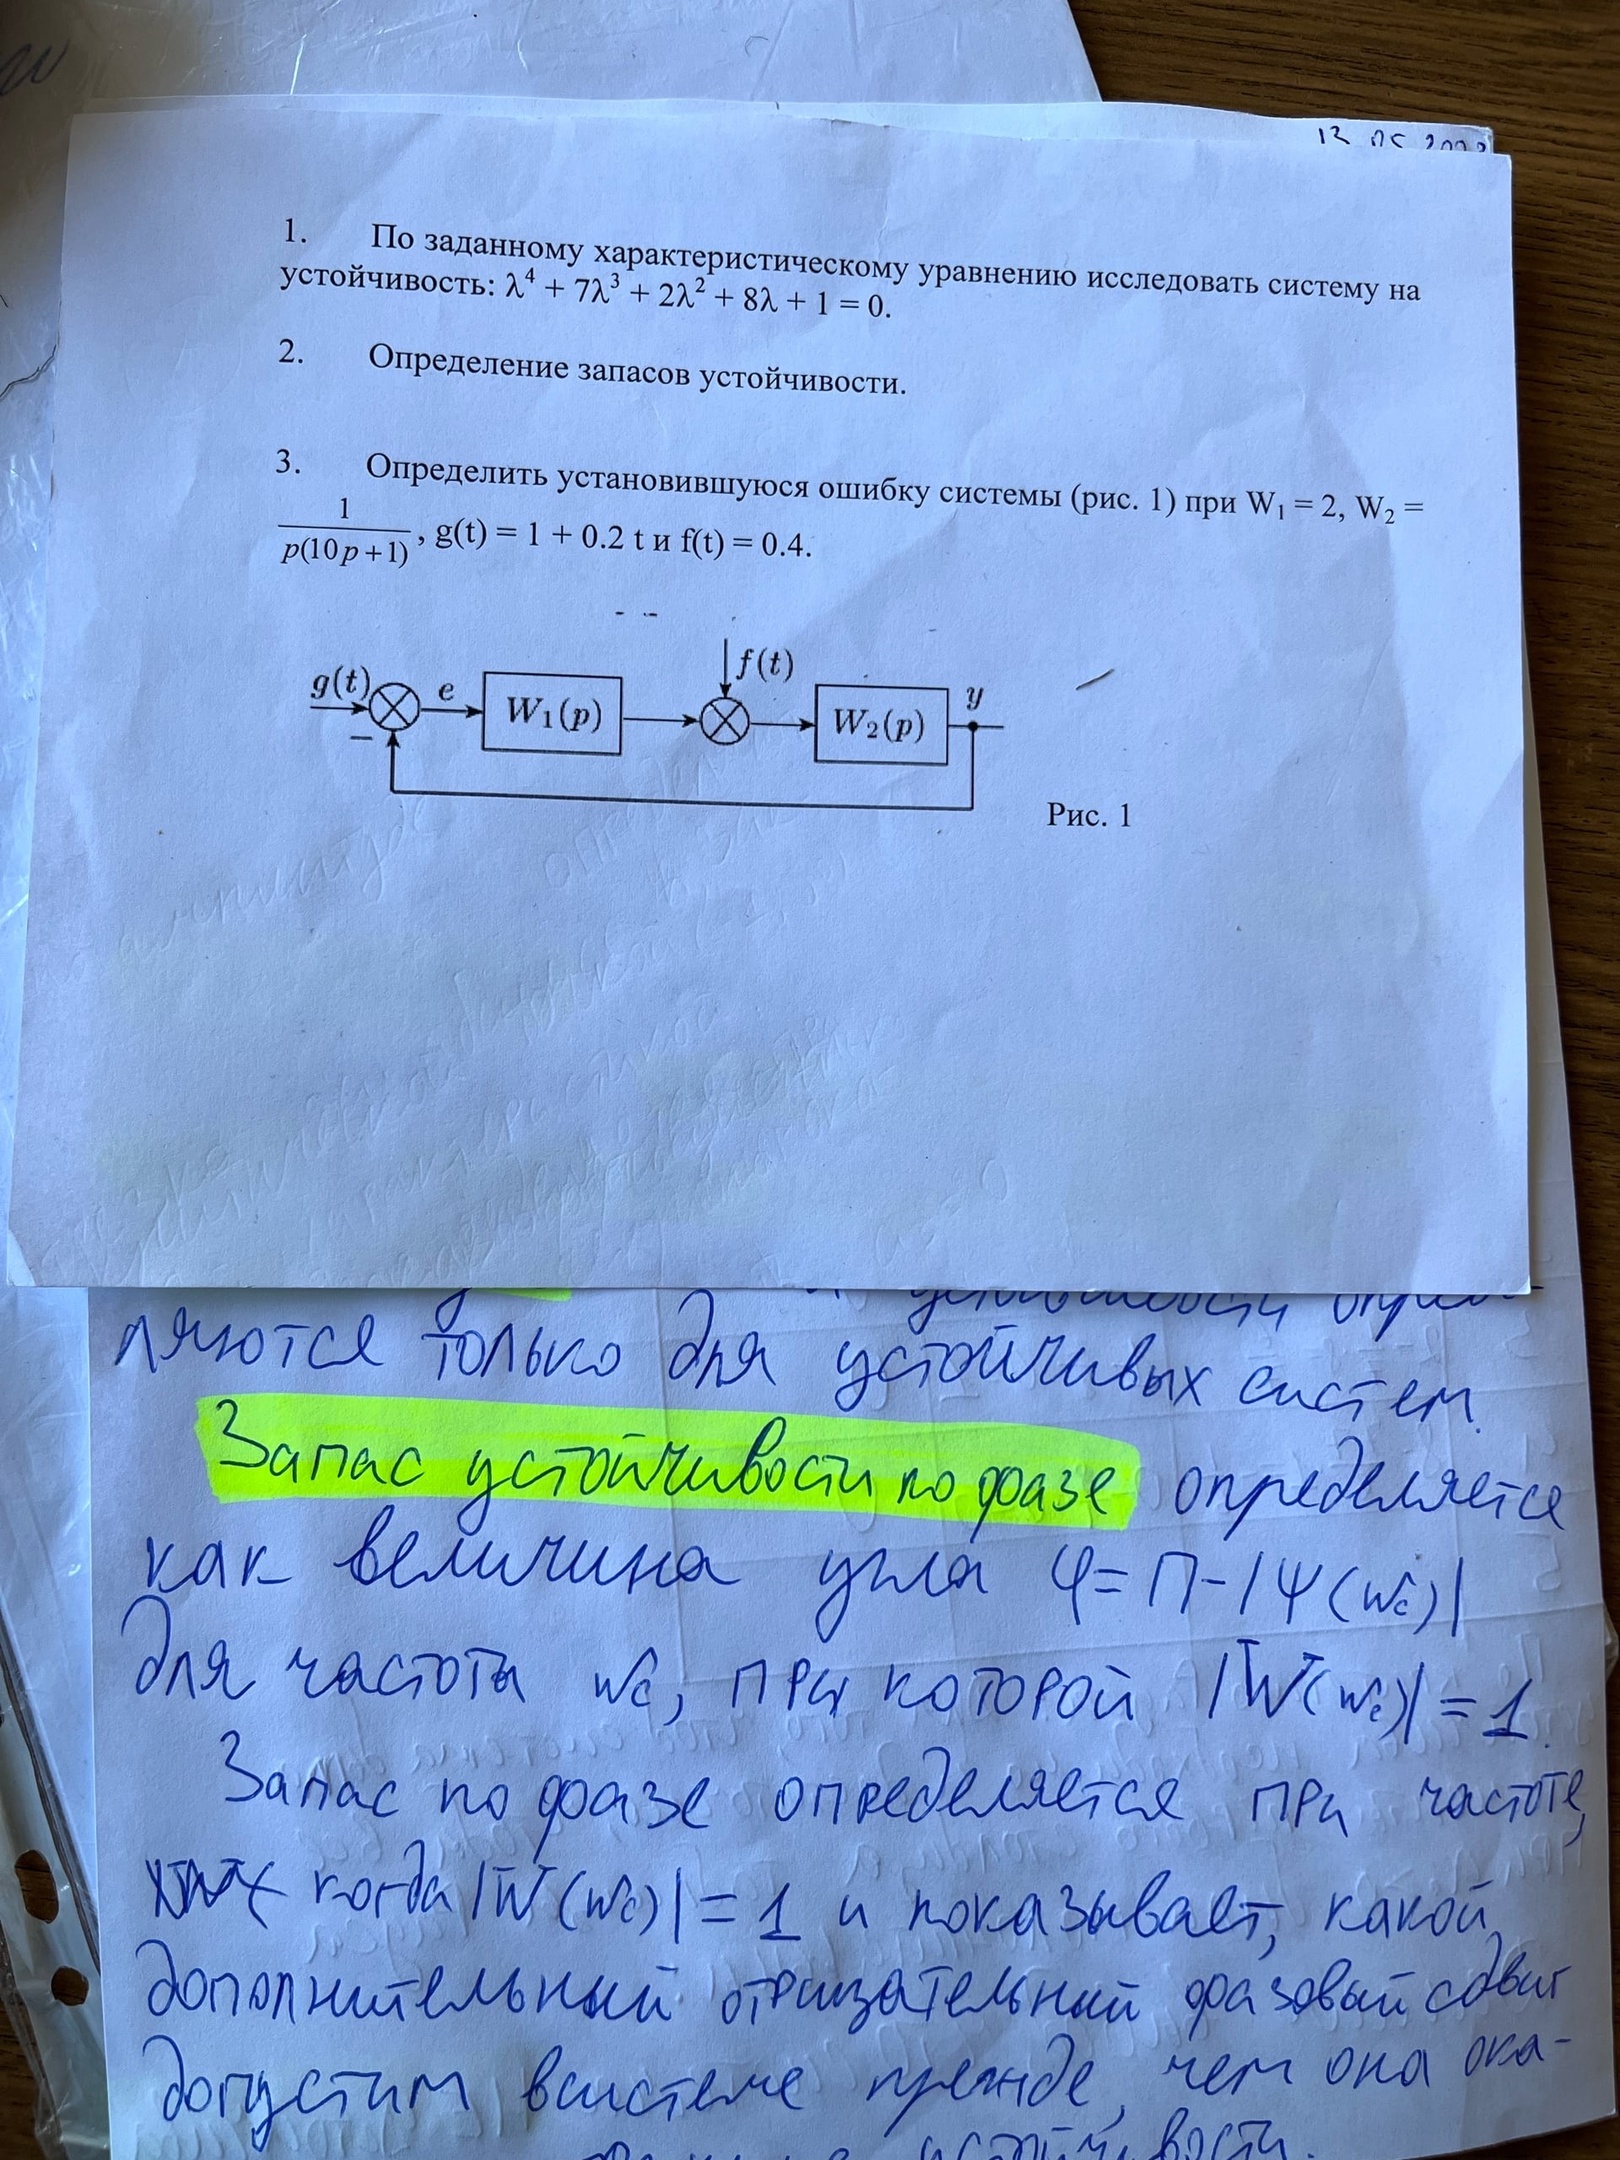 1. По заданному характеристическому уравнению исследовать систему на
устойчивость: λ⁴ + 7λ³ + 2λ² + 8λ + 1 = 0.
2. Определение запасов устойчивости.
3. Определить установившуюся ошибку системы (рис. 1) при W₁ = 2, W₂ =
1
p(10p+1) , g(t) = 1 + 0.2 t и f(t) = 0.4.
g(t) e W₁(p) f(t) W₂(p) y
−
Рис. 1
ляются только для устойчивых систем.
Запас устойчивости по фазе определяется
как величина угла φ=П-|Ψ(wc)|
для частоты wc, при которой |W(wc)|=1.
Запас по фазе определяется при частоте,
когда |W(wc)|=1 и показывает, какой
дополнительный отрицательный фазовый сдвиг
допустим в системе прежде, чем она ока-
устойчивости.